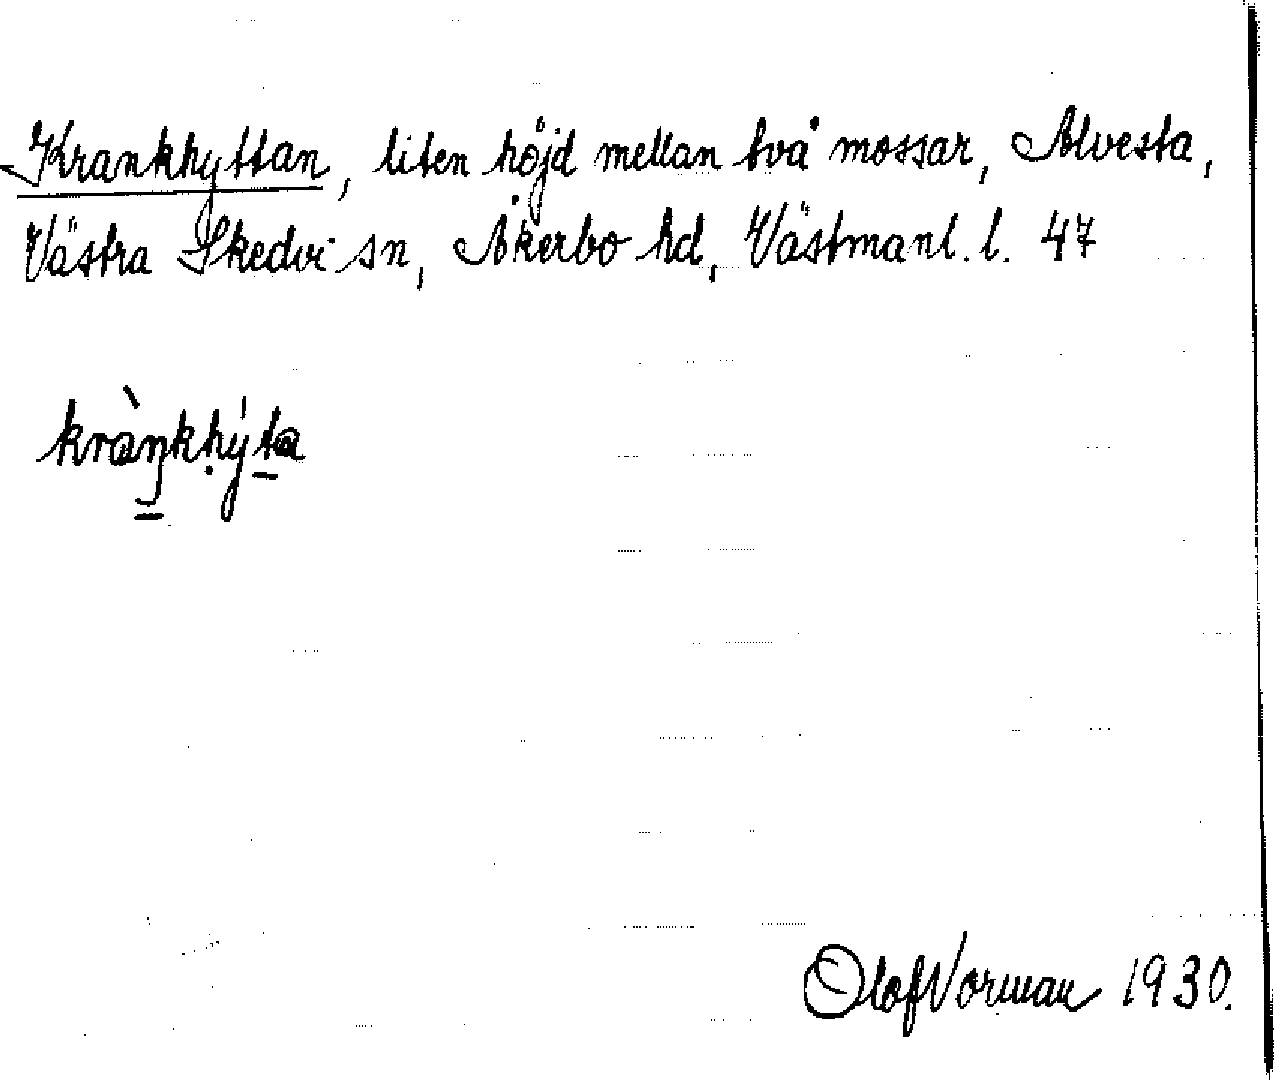 Krankhyttan, liten höjd mellan två mossar, Alvesta,
Västra Skedvi sn, Åkerbo hd, Västmanl. l. 47
kràŋkhýta
Olof Norman 1930.